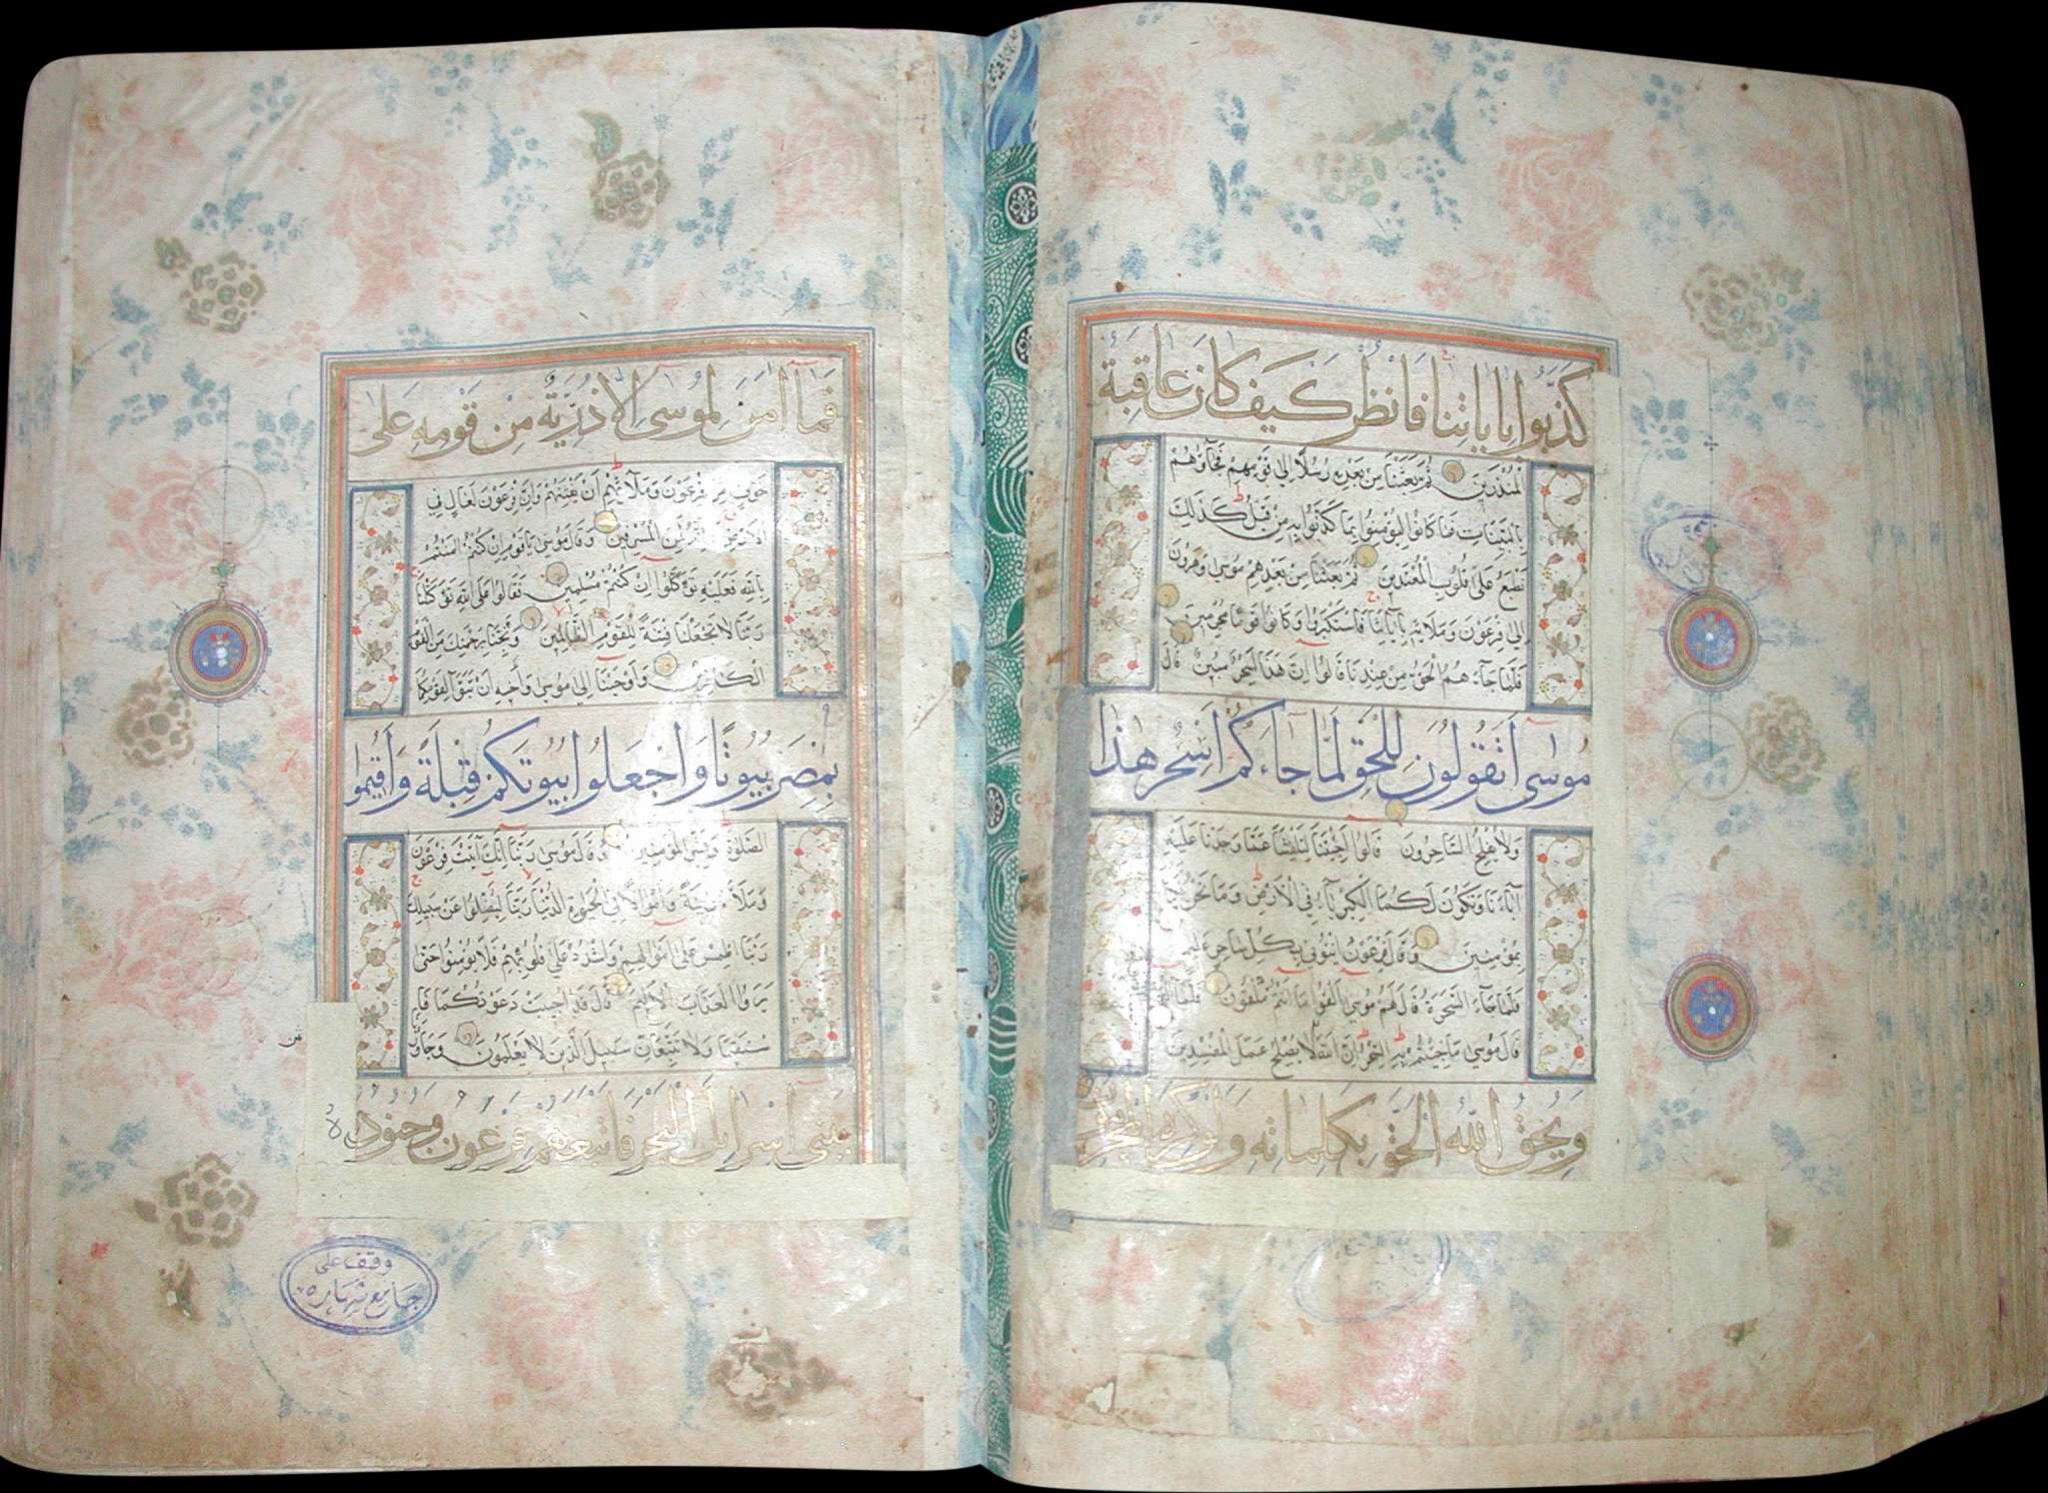 كَذَّبُوا بِاٰيَاتِنَا فَانْظُرْ كَيْفَ كَانَ عَاقِبَةُ
الْمُنْذَرِينَ ثُمَّ بَعَثْنَا مِنْ بَعْدِهِ رُسُلًا اِلٰى قَوْمِهِمْ فَجَآؤُهُمْ
بِالْبَيِّنَاتِ فَمَا كَانُوا لِيُؤْمِنُوا بِمَا كَذَّبُوا بِهِ مِنْ قَبْلُ كَذٰلِكَ
نَطْبَعُ عَلٰى قُلُوبِ الْمُعْتَدِينَ ثُمَّ بَعَثْنَا مِنْ بَعْدِهِمْ مُوسٰى وَهٰرُونَ
اِلٰى فِرْعَوْنَ وَمَلَائِهِ بِاٰيَاتِنَا فَاسْتَكْبَرُوا وَكَانُوا قَوْمًا مُجْرِمِينَ
فَلَمَّا جَآءَهُمُ الْحَقُّ مِنْ عِنْدِنَا قَالُوا اِنَّ هٰذَا لَسِحْرٌ مُبِينٌ قَالَ
مُوسٰى اَتَقُولُونَ لِلْحَقِّ لَمَّا جَآءَكُمْ اَسِحْرٌ هٰذَا
وَلَا يُفْلِحُ السَّاحِرُونَ قَالُوا اَجِئْتَنَا لِتَلْفِتَنَا عَمَّا وَجَدْنَا عَلَيْهِ
اٰبَآءَنَا وَتَكُونَ لَكُمَا الْكِبْرِيَآءُ فِي الْاَرْضِ وَمَا نَحْنُ لَكُمَا
بِمُؤْمِنِينَ وَقَالَ فِرْعَوْنُ ائْتُونِي بِكُلِّ سَاحِرٍ عَلِيمٍ
فَلَمَّا جَآءَ السَّحَرَةُ قَالَ لَهُمْ مُوسٰى اَلْقُوا مَا اَنْتُمْ مُلْقُونَ فَلَمَّا اَلْقَوْا
قَالَ مُوسٰى مَا جِئْتُمْ بِهِ السِّحْرُ اِنَّ اللّٰهَ لَا يُصْلِحُ عَمَلَ الْمُفْسِدِينَ
وَيُحِقُّ اللّٰهُ الْحَقَّ بِكَلِمَاتِهِ وَلَوْ كَرِهَ الْمُجْرِمُونَ
فَمَآ اٰمَنَ لِمُوسٰى اِلَّا ذُرِّيَّةٌ مِنْ قَوْمِهِ عَلٰى
خَوْفٍ مِنْ فِرْعَوْنَ وَمَلَائِهِمْ اَنْ يَفْتِنَهُمْ وَاِنَّ فِرْعَوْنَ لَعَالٍ فِي
الْاَرْضِ وَاِنَّهُ لَمِنَ الْمُسْرِفِينَ وَقَالَ مُوسٰى يَا قَوْمِ اِنْ كُنْتُمْ اٰمَنْتُمْ
بِاللّٰهِ فَعَلَيْهِ تَوَكَّلُوا اِنْ كُنْتُمْ مُسْلِمِينَ فَقَالُوا عَلَى اللّٰهِ تَوَكَّلْنَا
رَبَّنَا لَا تَجْعَلْنَا فِتْنَةً لِلْقَوْمِ الظَّالِمِينَ وَنَجِّنَا بِرَحْمَتِكَ مِنَ الْقَوْمِ
الْكَافِرِينَ وَاَوْحَيْنَا اِلٰى مُوسٰى وَاَخِيهِ اَنْ تَبَوَّآ لِقَوْمِكُمَا
بِمِصْرَ بُيُوتًا وَاجْعَلُوا بُيُوتَكُمْ قِبْلَةً وَاَقِيمُوا
الصَّلٰوةَ وَبَشِّرِ الْمُؤْمِنِينَ وَقَالَ مُوسٰى رَبَّنَا اِنَّكَ اٰتَيْتَ فِرْعَوْنَ
وَمَلَاَهُ زِينَةً وَاَمْوَالًا فِي الْحَيٰوةِ الدُّنْيَا رَبَّنَا لِيُضِلُّوا عَنْ سَبِيلِكَ
رَبَّنَا اطْمِسْ عَلٰى اَمْوَالِهِمْ وَاشْدُدْ عَلٰى قُلُوبِهِمْ فَلَا يُؤْمِنُوا حَتّٰى
يَرَوُا الْعَذَابَ الْاَلِيمَ قَالَ قَدْ اُجِيبَتْ دَعْوَتُكُمَا فَا
سْتَقِيمَا وَلَا تَتَّبِعَانِّ سَبِيلَ الَّذِينَ لَا يَعْلَمُونَ وَجَاوَزْنَا
بِبَنِي اِسْرَائِيلَ الْبَحْرَ فَاَتْبَعَهُمْ فِرْعَوْنُ وَجُنُودُهُ
وقف على
جامع شهاره